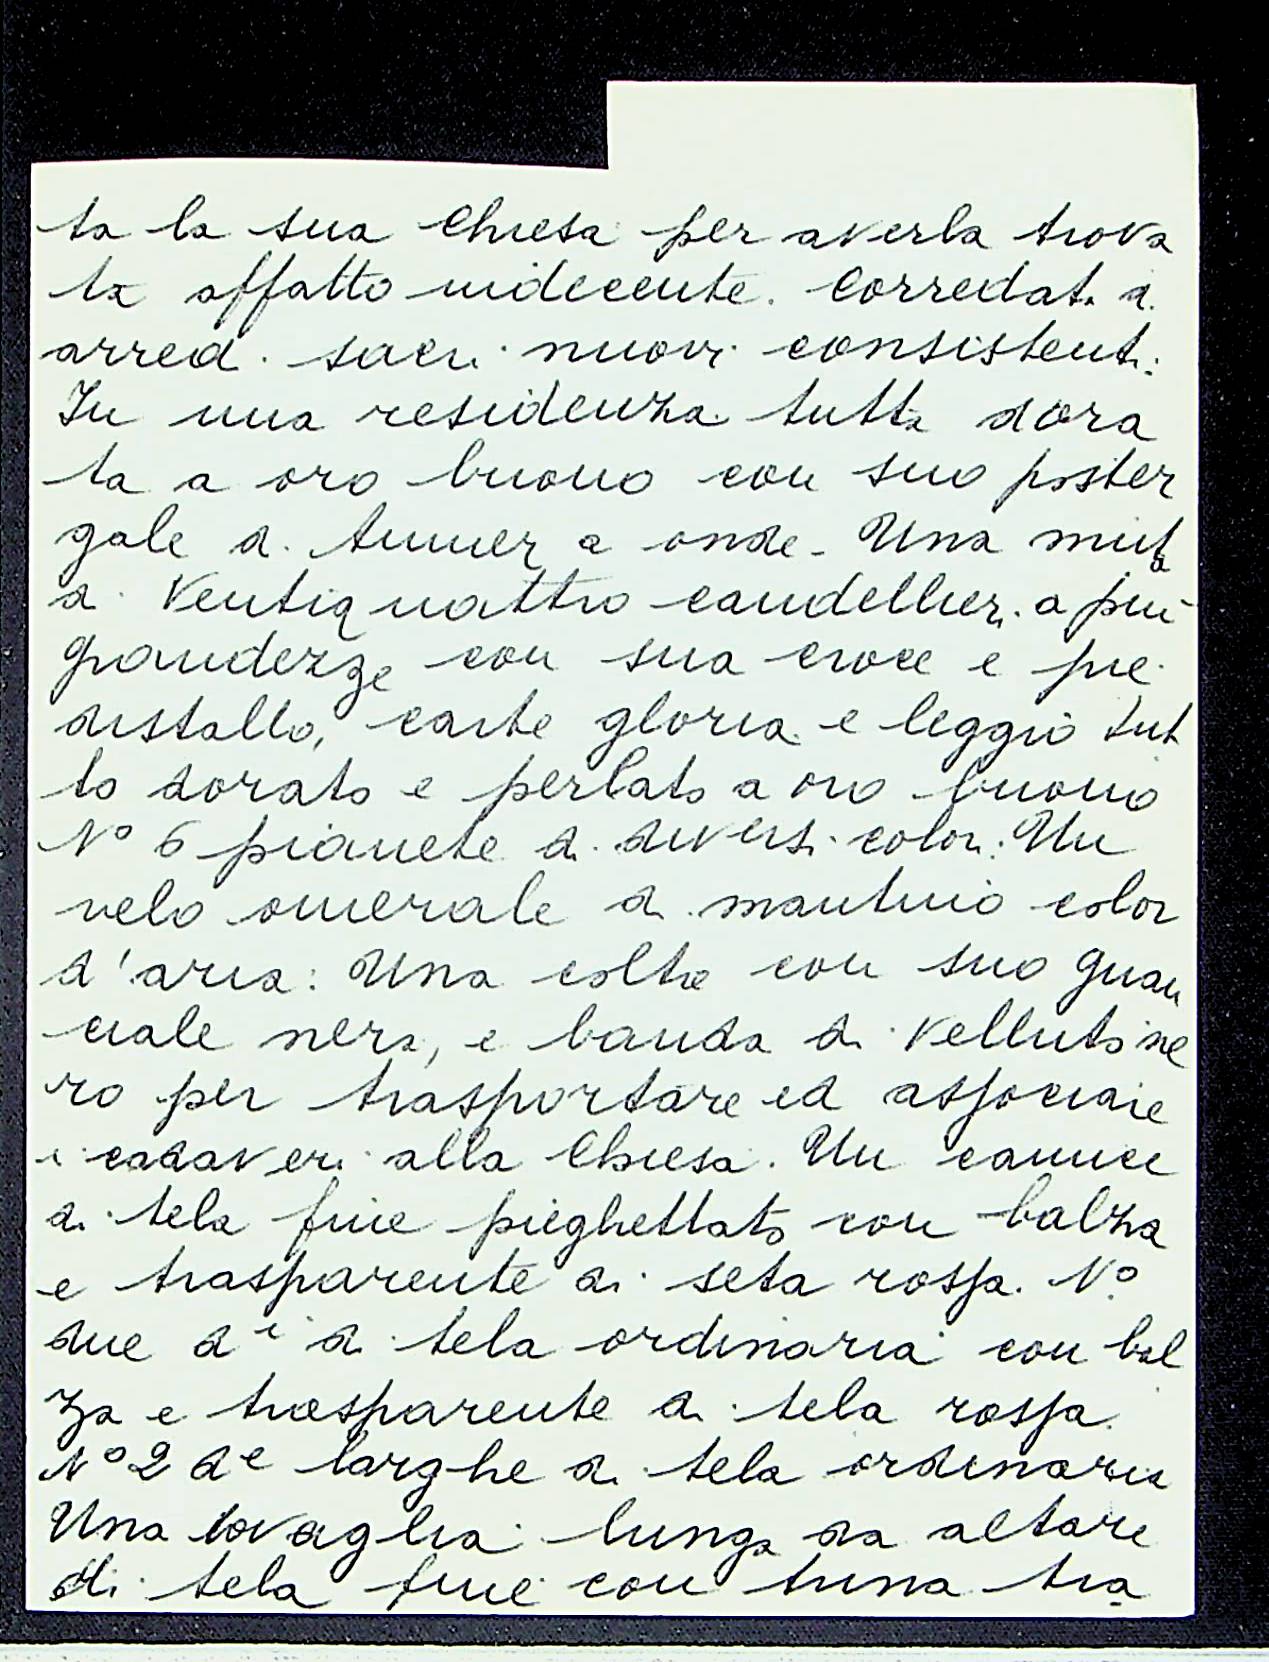 ta la sua Chiesa per averla trova
ta affatto indecente. Corredata di
arredi sacri nuovi consistenti:
In una residenza tutta dora
ta a oro buono con suo poster
gale di a onde - Una muta
di Ventiquattro candellieri a più
grandezze con sua croce e pie
distallo, carte gloria e leggio tut
to dorato e perlato a oro buono
N° 6 pianete di diversi colori: Un
velo omerale di mantino color
d'aria: Una coltre con suo guan
ciale nera, e banda di velluto ne
ro per trasportare ed associare
i cadaveri alla Chiesa. Un camice
di tela fine pieghettato con balza
e trasparente di seta rossa. N°
due di di tela ordinaria con bal
za e trasparente di tela rossa.
N° 2 de larghe di tela ordinaria
Una tovaglia lunga da altare
di tela fine con trina tra